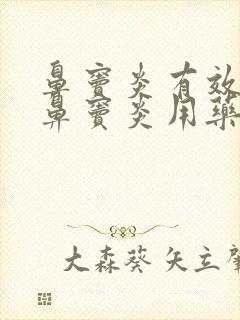 鼻窦炎有效
鼻窦炎用药
大森葵 矢立肇